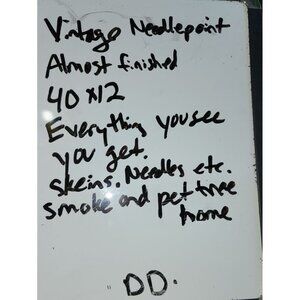 Vintage Needlepoint
Almost finished
40 x12
Everything you see
you get.
skeins. Needles etc.
smoke and pet free
home
DD.